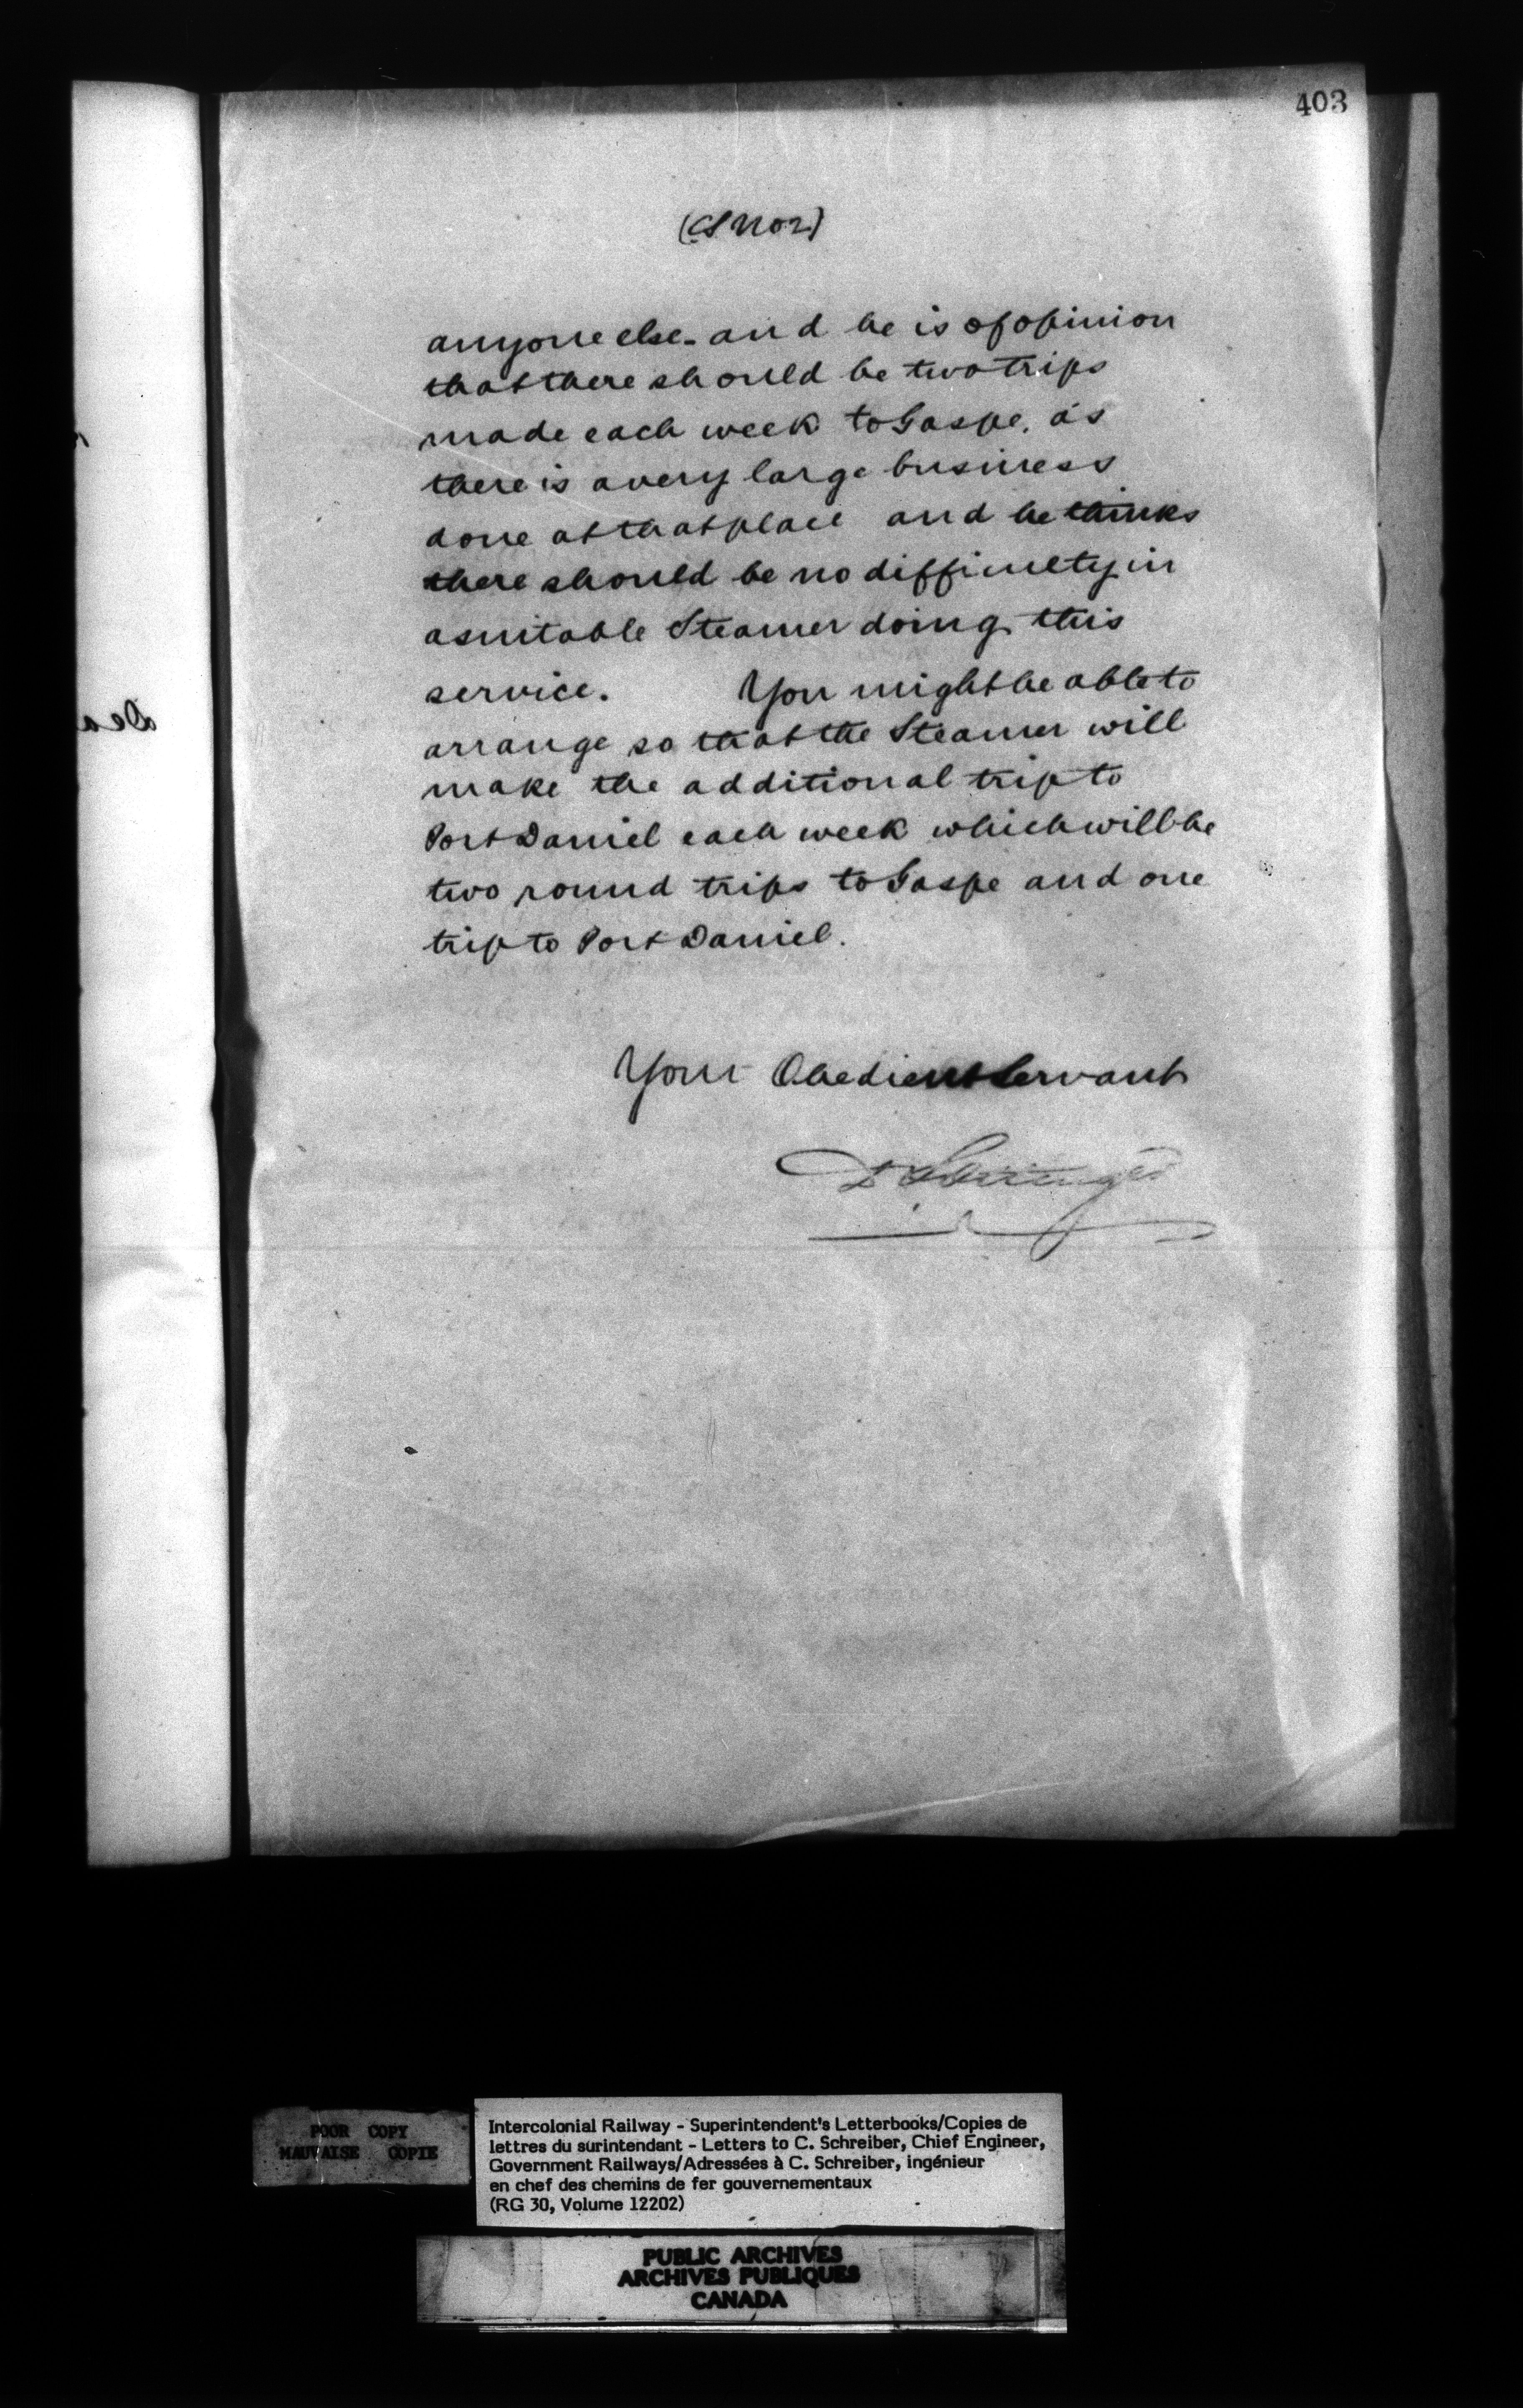 403
(CS No 2)
anyone else - and he is of opinion
that there should be two trips
made each week to Gaspe, as
there is a very large business
done at that place and he thinks
there should be no difficulty in
a suitable Steamer doing this
service. You might be able to
arrange so that the Steamer will
make the additional trip to
Port Daniel each week which will be
two round trips to Gaspe and one
trip to Port Daniel.
Your Obedient Servant
D Pottinger
Dea
POOR COPY
MAUVAISE COPIE
Intercolonial Railway - Superintendent's Letterbooks/Copies de
lettres du surintendant - Letters to C. Schreiber, Chief Engineer,
Government Railways/Adressées à C. Schreiber, ingénieur
en chef des chemins de fer gouvernementaux
(RG 30, Volume 12202)
PUBLIC ARCHIVES
ARCHIVES PUBLIQUES
CANADA